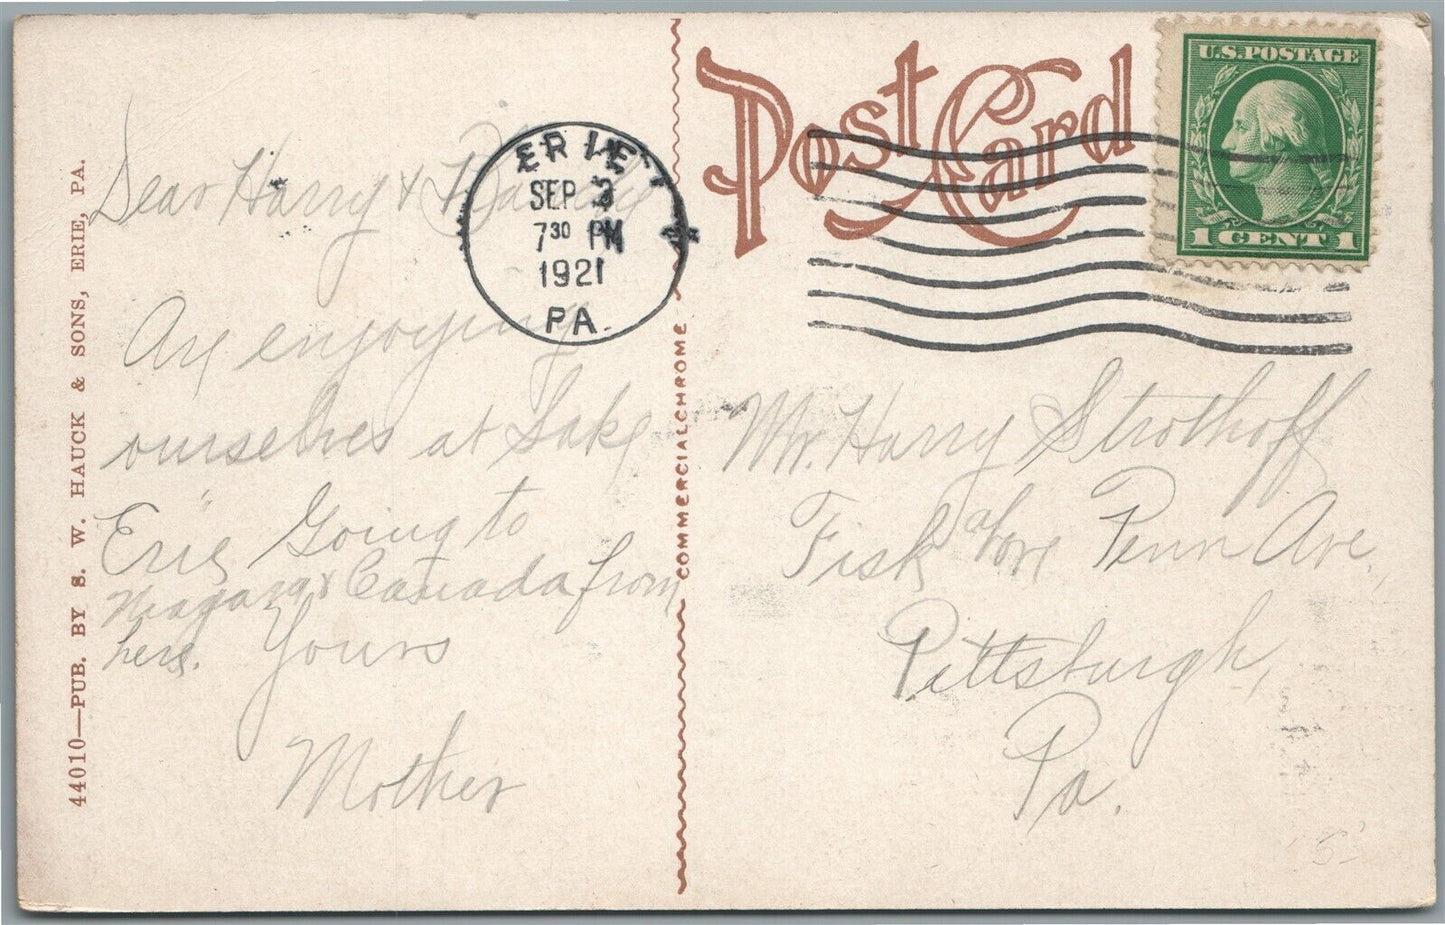 44010—PUB. BY S. W. HAUCK & SONS, ERIE, PA.
Dear Harry &
Are enjoying
ourselves at Lake
Erie, Going to
Niagara & Canada from
here. Yours
Mother
COMMERCIALCHROME
ERIE
SEP 3
7 30 PM
1921
PA.
Post Card
U.S. POSTAGE
1 CENT 1
Mr. Harry Strothoff
Fisk above Penn Ave.
Pittsburgh,
Pa.